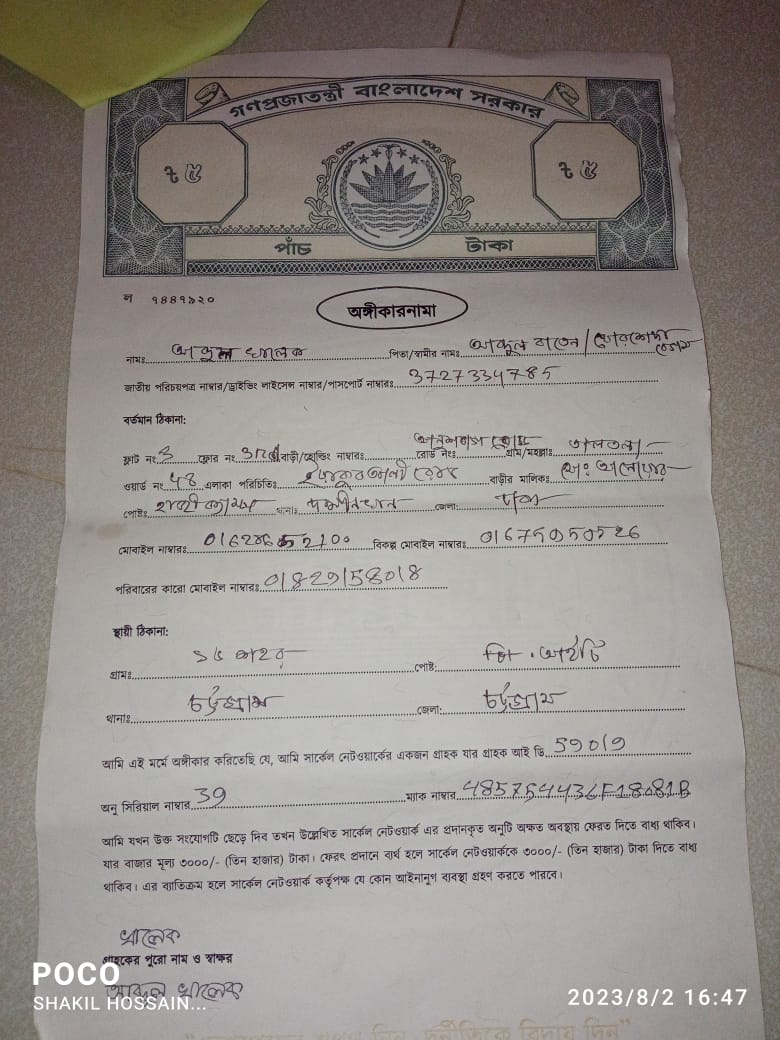 গণপ্রজাতন্ত্রী বাংলাদেশ সরকার
৳ ৫ ৳ ৫
পাঁচ টাকা
ল ৭৪৪৭৯২০
অঙ্গীকারনামা
নামঃ খালেক পিতা/স্বামীর নামঃ
জাতীয় পরিচয়পত্র নাম্বার/ড্রাইভিং লাইসেন্স নাম্বার/পাসপোর্ট নাম্বারঃ 3727334785
বর্তমান ঠিকানা:
ফ্লাট নং 3 ফ্লোর নং বাড়ী/হোল্ডিং নাম্বারঃ রোড নংঃ গ্রাম/মহল্লাঃ তালতলা
ওয়ার্ড নং 48 এলাকা পরিচিতিঃ রোড বাড়ীর মালিকঃ
পোষ্টঃ থানাঃ দক্ষীনখান জেলাঃ ঢাকা
মোবাইল নাম্বারঃ বিকল্প মোবাইল নাম্বারঃ 01675050526
পরিবারের কারো মোবাইল নাম্বারঃ 01829158018
স্থায়ী ঠিকানা:
গ্রামঃ পোষ্ট:
থানাঃ চট্টগ্রাম জেলা: চট্টগ্রাম
আমি এই মর্মে অঙ্গীকার করিতেছি যে, আমি সার্কেল নেটওয়ার্কের একজন গ্রাহক যার গ্রাহক আই ডি 59019
অনু সিরিয়াল নাম্বার 39 ম্যাক নাম্বার
আমি যখন উক্ত সংযোগটি ছেড়ে দিব তখন উল্লেখিত সার্কেল নেটওয়ার্ক এর প্রদানকৃত অনুটি অক্ষত অবস্থায় ফেরত দিতে বাধ্য থাকিব।
যার বাজার মূল্য ৩০০০/- (তিন হাজার) টাকা। ফেরৎ প্রদানে ব্যর্থ হলে সার্কেল নেটওয়ার্ককে ৩০০০/- (তিন হাজার) টাকা দিতে বাধ্য
থাকিব। এর ব্যতিক্রম হলে সার্কেল নেটওয়ার্ক কর্তৃপক্ষ যে কোন আইনানুগ ব্যবস্থা গ্রহণ করতে পারবে।
খালেক
গ্রাহকের পুরো নাম ও স্বাক্ষর
খালেক
POCO
SHAKIL HOSSAIN...
2023/8/2 16:47
দিন, দুর্নীতিকে বিদায় দিন"